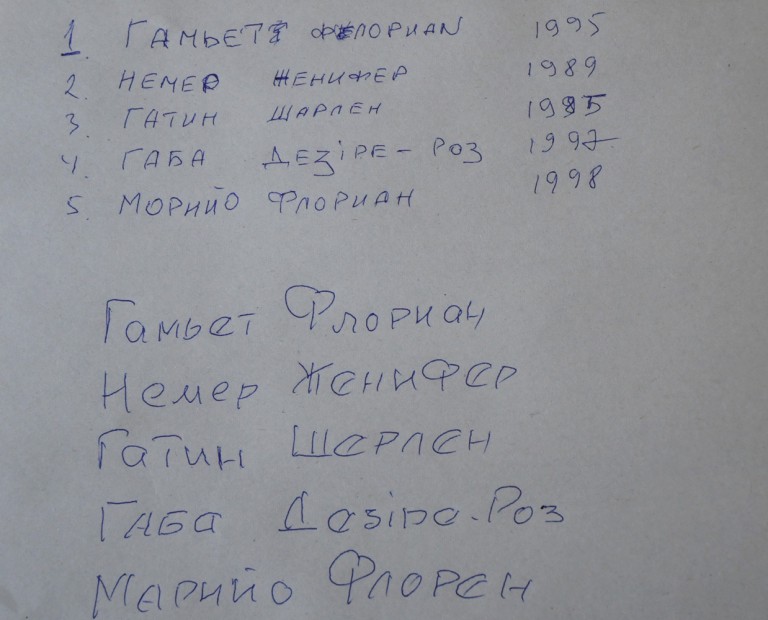 1. ГАМЬЕТ ФЛОРИАN 1995
2. НЕМЕР ЖЕНИФЕР 1989
3. ГАТИН ШАРЛЕН 1985
4 ГАБА ДЕЗІРЕ - РОЗ 1997
5. МОРИЙО ФЛОРИАН 1998
Гамьет Флориан
Немер Женифер
Гатин Шерлен
Габа Дезіре-Роз
Марийо Флорен